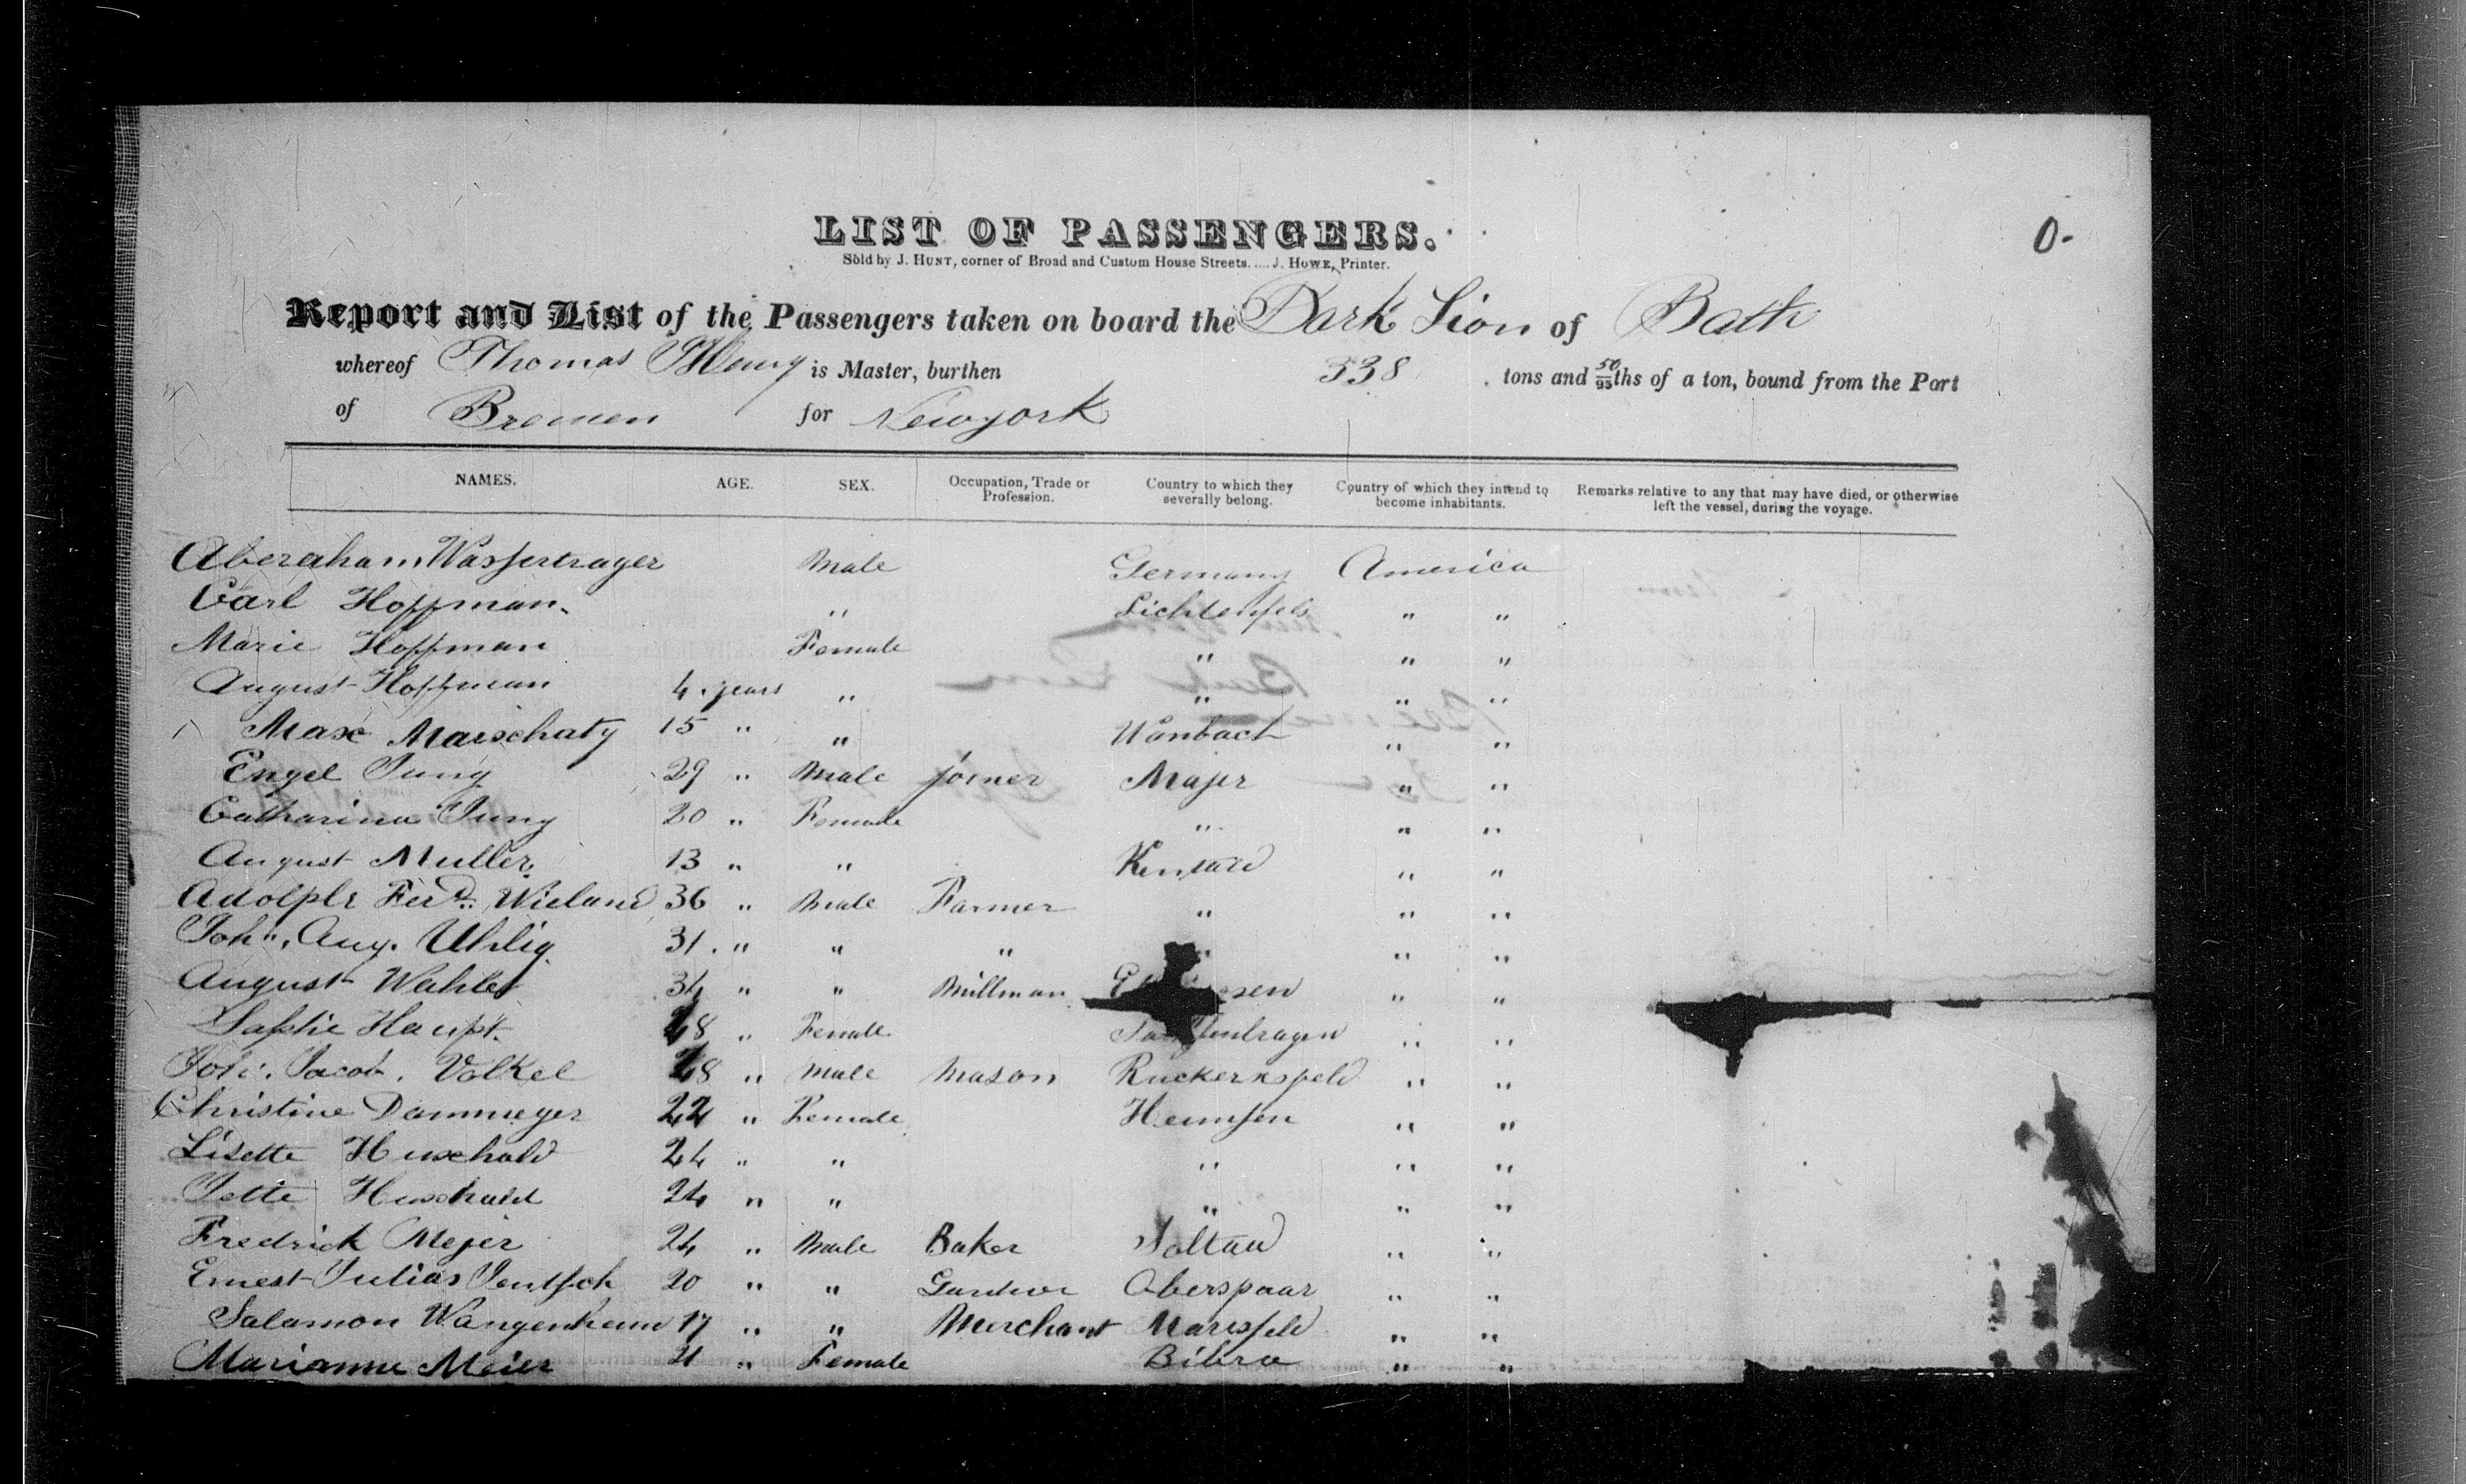 0-
LIST OF PASSENGERS.
Sold by J. HUNT, corner of Broad and Custom House Streets.....J. HOWE, Printer.
Report and List of the Passengers taken on board the Bark Lion of Bath
whereof Thomas is Master, burthen 338 tons and 50/95ths of a ton, bound from the Port
of Bremen for Newyork
NAMES. AGE. SEX. Occupation, Trade or Profession. Country to which they severally belong. Country of which they intend to become inhabitants. Remarks relative to any that may have died, or otherwise left the vessel, during the voyage.
Aberaham Wassertrager Male Germany America
Carl Hoffman " Lichtenfels " "
Marie Hoffman Female " " "
August Hoffman 4 years " " " "
Max Marschaty 15 " " Wanbach " "
Engel Jung 29 " Male Joiner Majer " "
Catharina Jung 20 " Female " " "
August Muller 13 " " " "
Adolph Ferd. Wieland 36 " Male Farmer " " "
Joh", Aug. Uhlig 31. " " " " "
August Wahler 34 " " Millman " "
Saphie Haupt 28 " Female " "
Joh. Jacob. Volkel 28 " Male Mason Ruckersfeld " "
Christine Dammeyer 22 " Female Hemsen " "
Lisette Huschold 24 " " " " "
Jette Huschald 24 " " " " "
Fredrick Mejer 24 " Male Baker Soltau " "
Ernest Julias Jentsch 20 " " Gardner Oberspaar " "
Salamon Wangenheim 17 " " Merchant Marisfeld " "
Marianne Meier 21 " Female Bibra " "